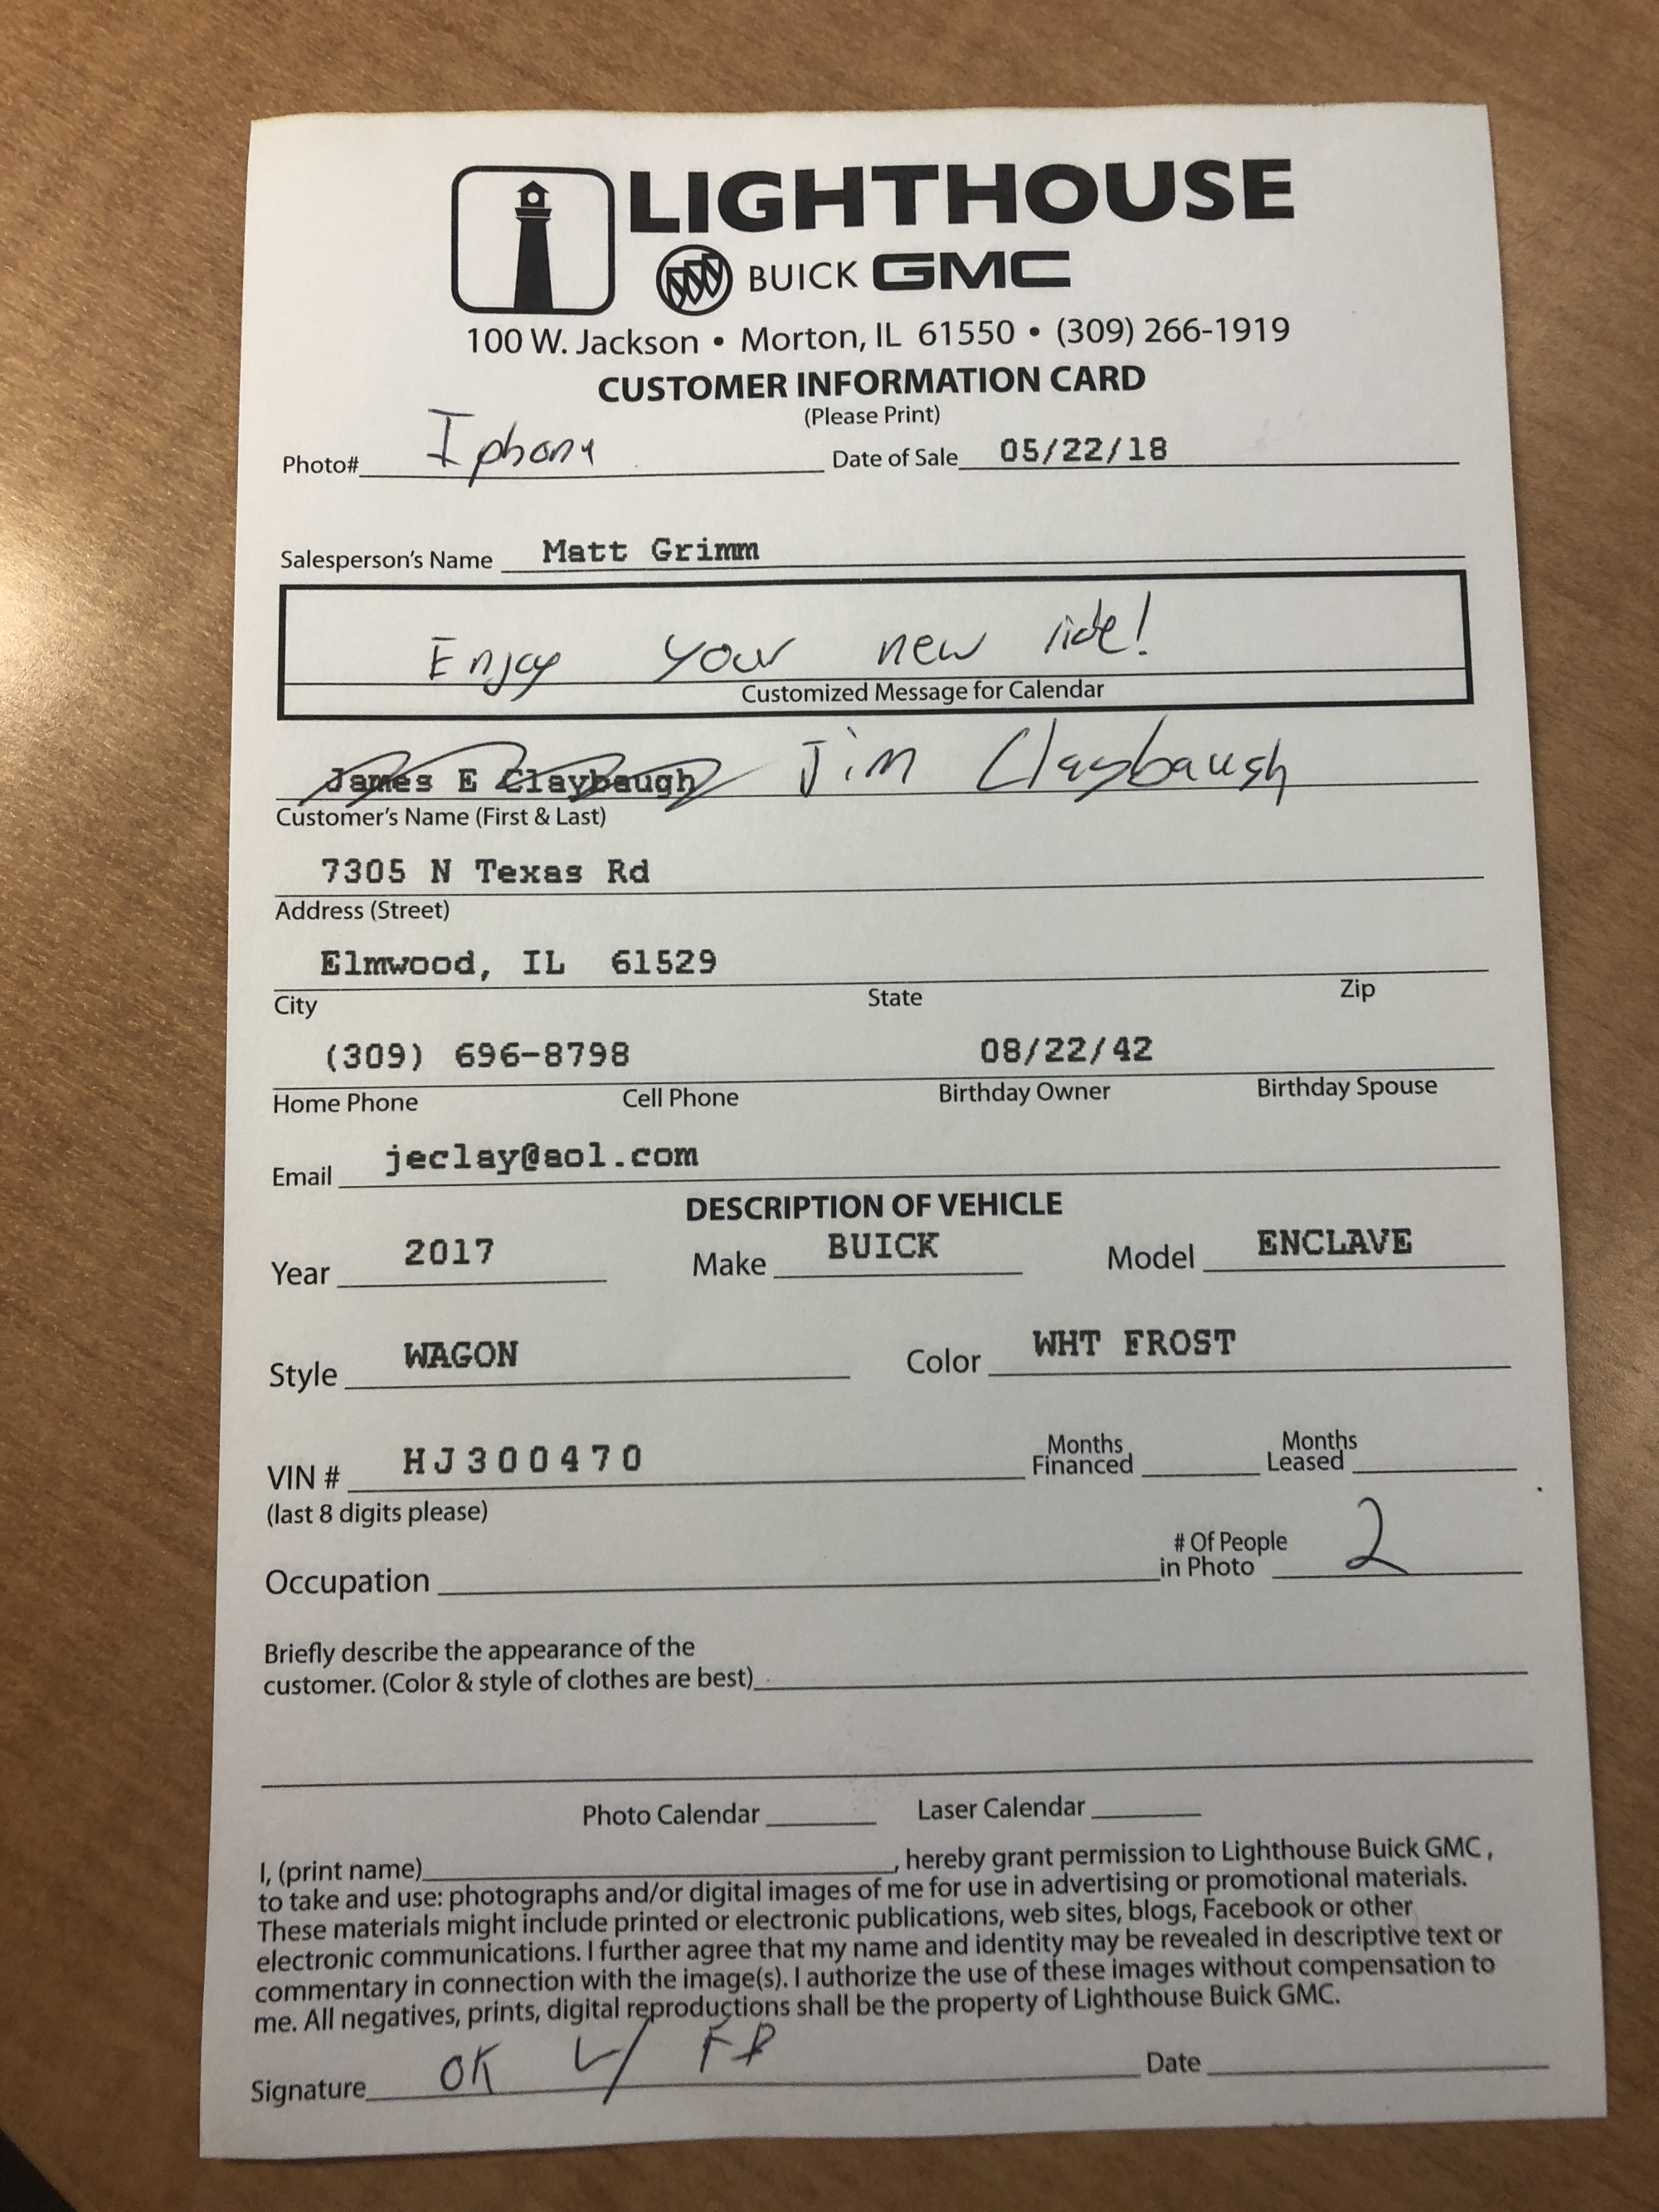 LIGHTHOUSE
BUICK GMC
100 W. Jackson • Morton, IL 61550 • (309) 266-1919
CUSTOMER INFORMATION CARD
(Please Print)
Photo# Iphone Date of Sale 05/22/18
Salesperson's Name Matt Grimm
Enjoy your new ride!
Customized Message for Calendar
James E Claybaugh Jim Claybaugh
Customer's Name (First & Last)
7305 N Texas Rd
Address (Street)
Elmwood, IL 61529
City State Zip
(309) 696-8798 08/22/42
Home Phone Cell Phone Birthday Owner Birthday Spouse
Email jeclay@aol.com
DESCRIPTION OF VEHICLE
Year 2017 Make BUICK Model ENCLAVE
Style WAGON Color WHT FROST
VIN # HJ300470 Months Financed Months Leased
(last 8 digits please)
Occupation # Of People in Photo 2
Briefly describe the appearance of the
customer. (Color & style of clothes are best)
Photo Calendar Laser Calendar
I, (print name) , hereby grant permission to Lighthouse Buick GMC ,
to take and use: photographs and/or digital images of me for use in advertising or promotional materials.
These materials might include printed or electronic publications, web sites, blogs, Facebook or other
electronic communications. I further agree that my name and identity may be revealed in descriptive text or
commentary in connection with the image(s). I authorize the use of these images without compensation to
me. All negatives, prints, digital reproductions shall be the property of Lighthouse Buick GMC.
Signature OK w/ FB Date